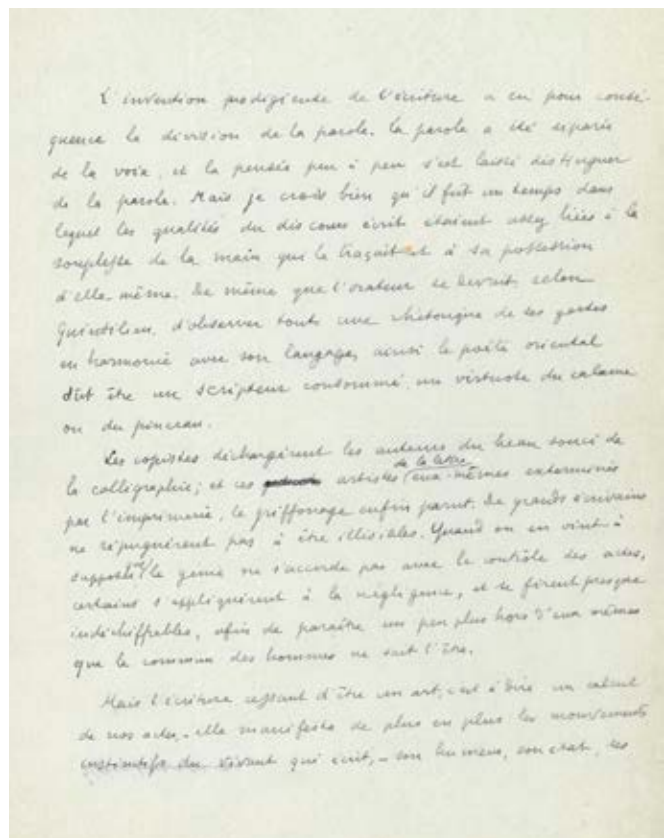 L'invention prodigieuse de l'écriture a eu pour consé-
quence la division de la parole. La parole a été séparée
de la voix, et la pensée peu à peu s'est laissé distinguer
de la parole. Mais je crois bien qu'il fut un temps dans
lequel les qualités du discours écrit étaient assez liées à la
souplesse de la main qui le traçait et à sa possession
d'elle-même. De même que l'orateur se devait, selon
Quintilien, d'observer toute une rhétorique de ses gestes
en harmonie avec son langage, ainsi le poète oriental
dût être un scripteur consommé, un virtuose du calame
ou du pinceau.
Les copistes déchargèrent les auteurs du beau souci de
la calligraphie; et ces artistes de la lettre eux-mêmes exterminés
par l'imprimerie, le griffonnage enfin parut. De grands écrivains
ne répugnèrent pas à être illisibles. Quand on en vint à
supposer que le génie ne s'accorde pas avec le contrôle des actes,
certains s'appliquèrent à la négligence, et se firent presque
indéchiffrables, afin de paraître un peu plus hors d'eux mêmes
que le commun des hommes ne sait l'être.
Mais l'écriture cessant d'être un art, c'est à dire un calcul
de nos actes, - elle manifeste de plus en plus les mouvements
instinctifs du vivant qui écrit, - son humeur, son état, ses